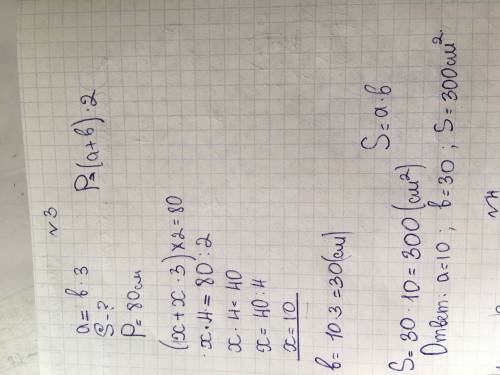 № 3
a = в · 3
S - ?
P = 80 см
P = (a + в) · 2
(x + x · 3) × 2 = 80
x · 4 = 80 : 2
x · 4 = 40
x = 40 : 4
x = 10
в = 10 · 3 = 30 (см)
S = a · в
S = 30 · 10 = 300 (см²)
Ответ: a = 10 ; в = 30 ; S = 300 см²